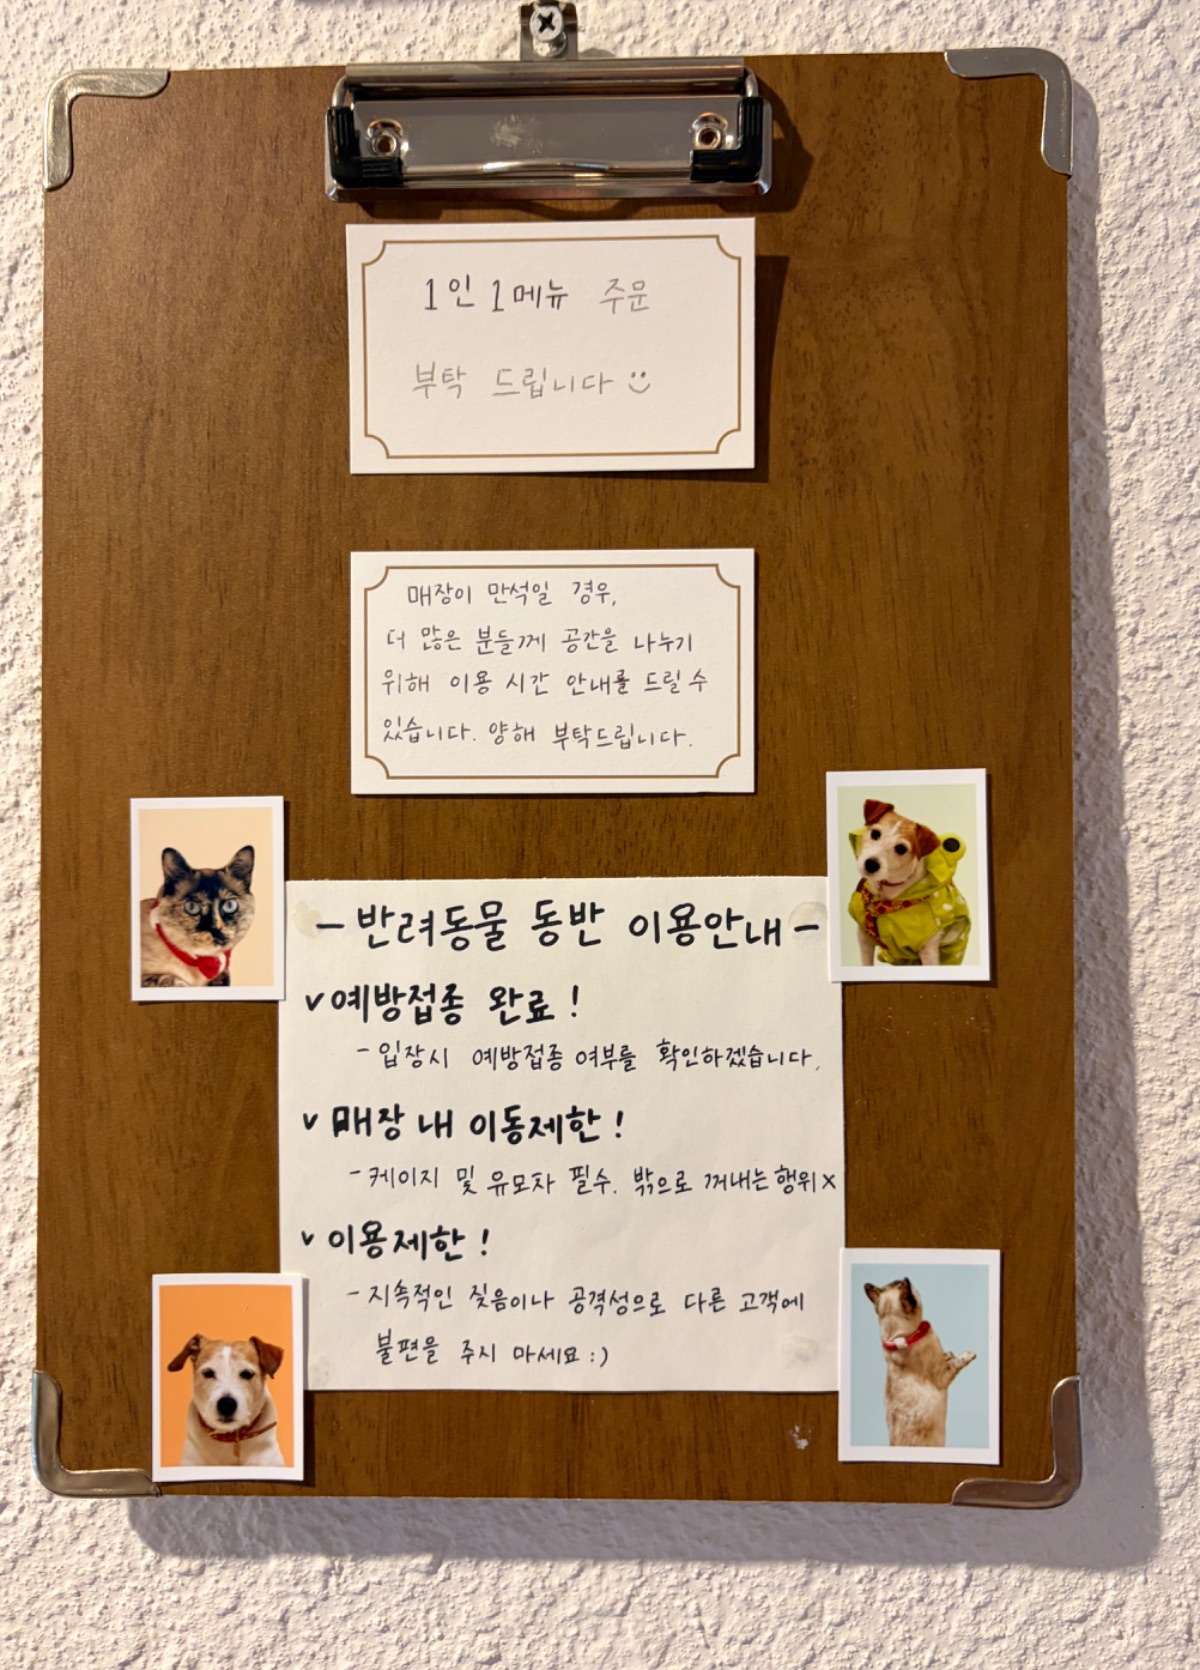 1인 1메뉴 주문
부탁 드립니다 :)
매장이 만석일 경우,
더 많은 분들께 공간을 나누기
위해 이용 시간 안내를 드릴 수
있습니다. 양해 부탁드립니다.
- 반려동물 동반 이용안내 -
✓ 예방접종 완료!
- 입장시 예방접종 여부를 확인하겠습니다.
✓ 매장 내 이동제한!
- 케이지 및 유모차 필수. 밖으로 꺼내는 행위 X
✓ 이용제한!
- 지속적인 짖음이나 공격성으로 다른 고객에
불편을 주시 마세요 :)